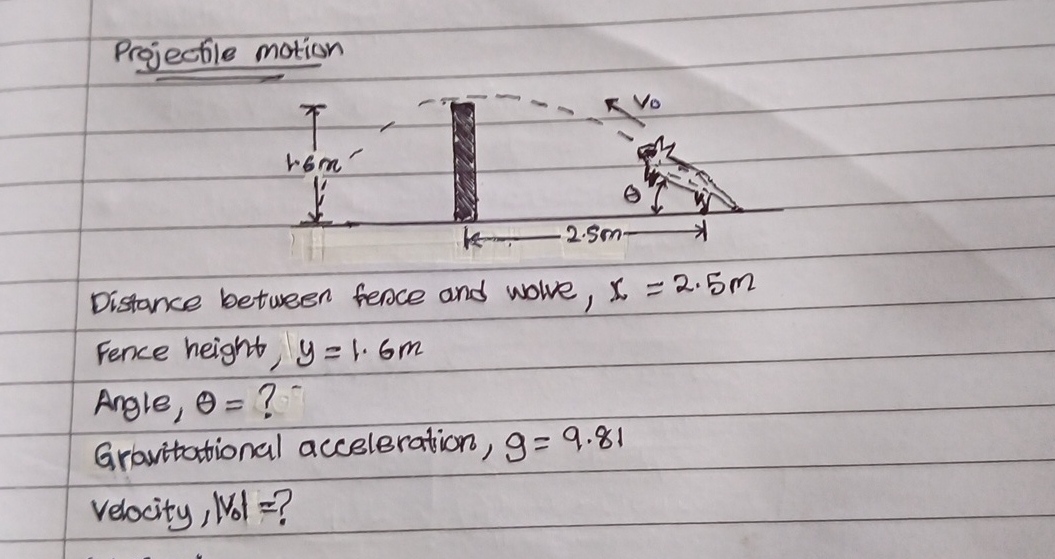 Projectile motion
V₀
1.6m
θ
2.5m
Distance between fence and wolve, x = 2.5m
Fence height, y = 1.6m
Angle, θ = ?
Gravitational acceleration, g = 9.81
Velocity, |V₀| = ?